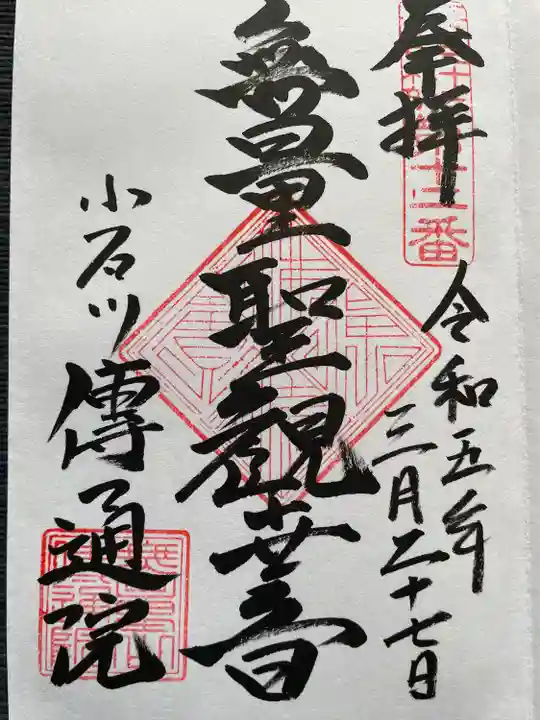 奉拝
十三番
令和五年
三月二十七日
無量聖観世音
小石川傳通院